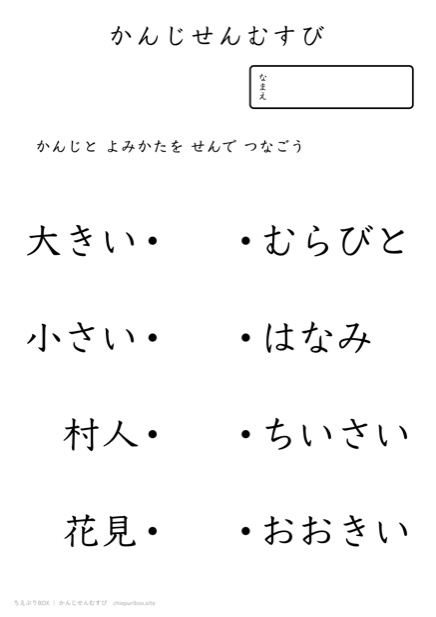 かんじせんむすび
なまえ
かんじと よみかたを せんで つなごう
大きい• •むらびと
小さい• •はなみ
村人• •ちいさい
花見• •おおきい
ちえぷりBOX | かんじせんむすび chiepuribox.site